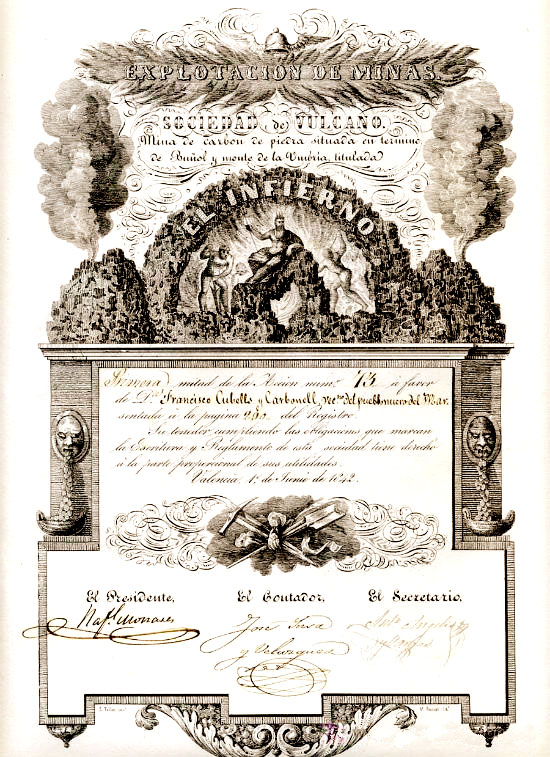 EXPLOTACION DE MINAS.
SOCIEDAD de VULCANO.
Mina de carbon de piedra situada en termino
de Buñol y monte de la Umbria, titulada
EL INFIERNO
Primera mitad de la Accion num.º 73 á favor
de D.n Francisco Cubells y Carbonell, vec.no del pueblo nuevo del Mar
sentada á la pagina 240 del Registro.
Su tenedor cumpliendo las obligaciones que marcan
la Escritura y Reglamento de esta sociedad tiene derecho
á la parte proporcional de sus utilidades.
Valencia, 1.º de Junio de 1842.
El Presidente, El Contador, El Secretario.
Raf.l Monares
José Insa
y Velazquez